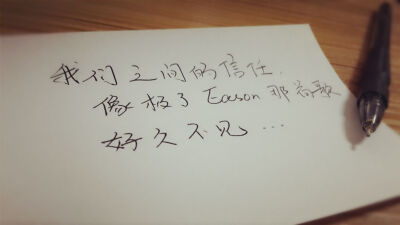 我们之间的信任,
像极了Eason那首歌
好久不见…